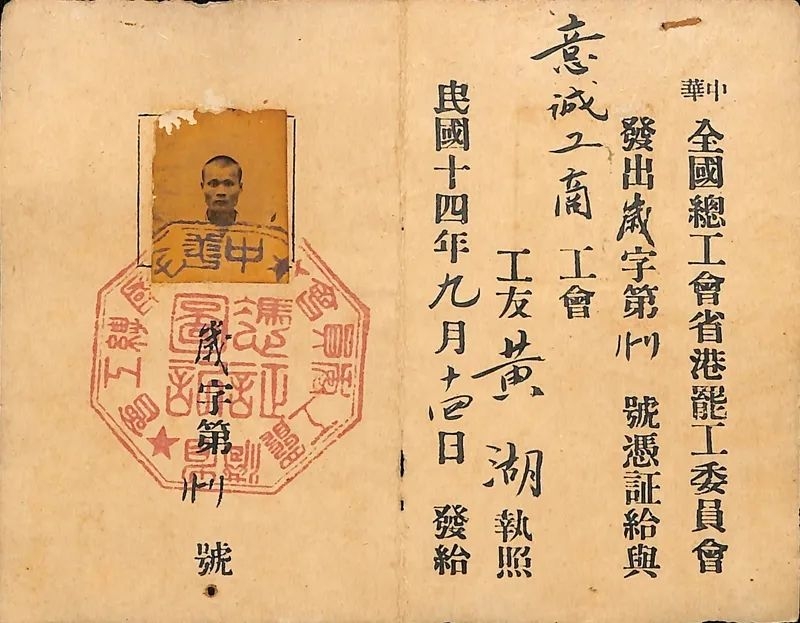 中華
全國總工會省港罷工委員會
發出歲字第 號憑証給與
意誠工商工會
工友黃湖執照
民國十四年九月十四日發給
中華
歲字第 號